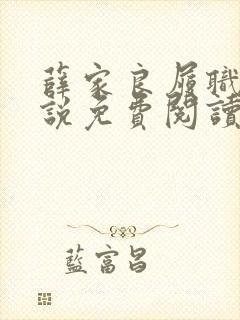 薛家良履職
說免費閱讀
藍富昌